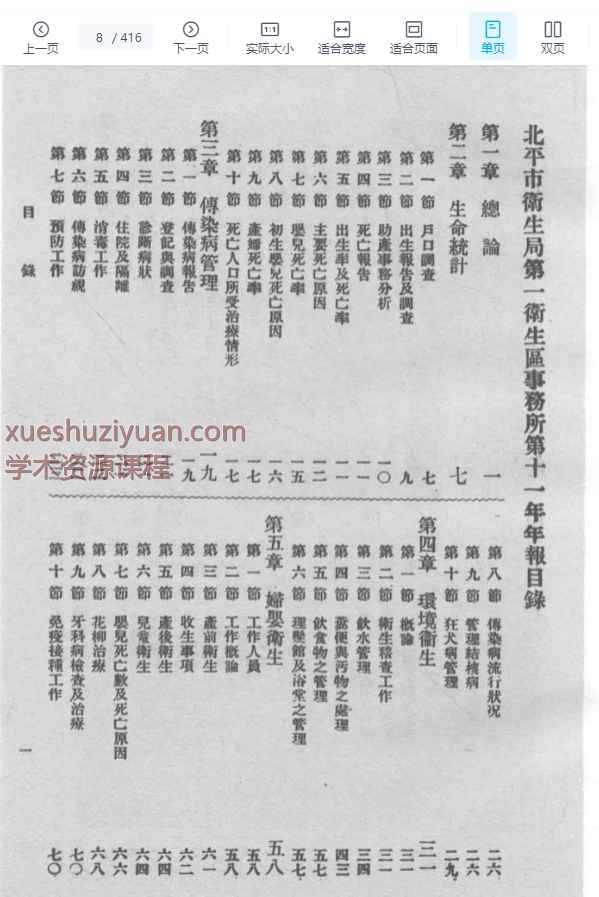 上一页
8 / 416
下一页
实际大小
适合宽度
适合页面
单页
双页
北平市衛生局第一衛生區事務所第十一年年報目錄
第一章 總論 一
第二章 生命統計 七
第一節 戶口調查 七
第二節 出生報告及調查 九
第三節 助產事務分析 一〇
第四節 死亡報告 一一
第五節 出生率及死亡率 一一
第六節 主要死亡原因 一二
第七節 嬰兒死亡率 一五
第八節 初生嬰兒死亡原因 一六
第九節 產婦死亡率 一七
第十節 死亡人口所受治療情形 一七
第三章 傳染病管理 一九
第一節 傳染病報告 一九
第二節 登記與調查
第三節 診斷病狀
第四節 住院及隔離
第五節 消毒工作
第六節 傳染病訪視
第七節 預防工作
第八節 傳染病流行狀况 二六
第九節 管理結核病 二六
第十節 狂犬病管理 二九
第四章 環境衞生 三一
第一節 概論 三一
第二節 衛生稽查工作 三一
第三節 飲水管理 三四
第四節 糞便與汚物之處理 四三
第五節 飲食物之管理 五七
第六節 理髮館及浴堂之管理 五七
第五章 婦嬰衛生 五八
第一節 工作人員 五八
第二節 工作概論 五八
第三節 產前衛生 六一
第四節 收生事項 六二
第五節 產後衛生 六四
第六節 兒童衛生 六四
第七節 嬰兒死亡數及死亡原因 六六
第八節 花柳治療 六八
第九節 牙科病檢查及治療 七〇
第十節 免疫接種工作 七〇
目錄
一
xueshuziyuan.com
学术资源课程